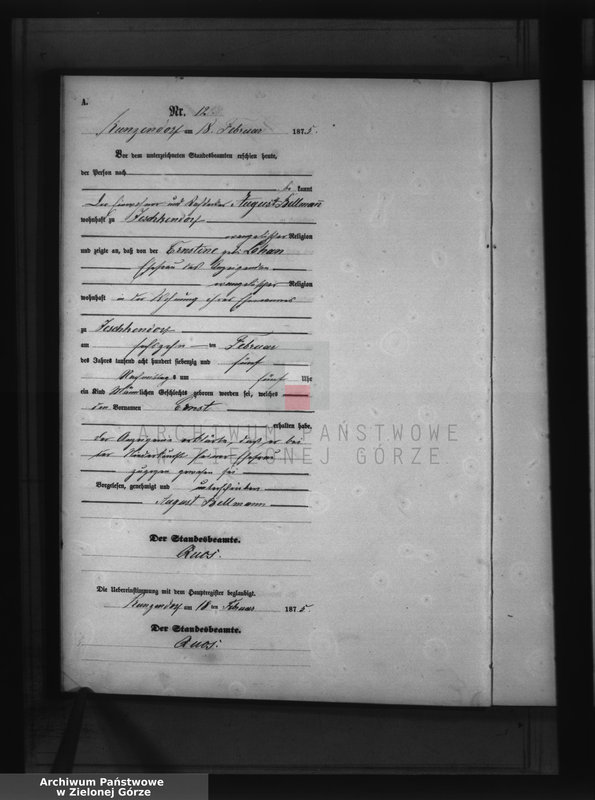 A.
Nr. 12.
Kunzendorf am 18. Februar 1875.
Vor dem unterzeichneten Standesbeamten erschien heute,
der Person nach
be kannt
Der Einwohner und August Bellmann
wohnhaft zu Jeschkendorf
evangelischer Religion
und zeigte an, daß von der Ernstine geb. Lehan
Ehefrau des Anzeigenden
evangelischer Religion
wohnhaft in der Wohnung ihres Ehemannes
zu Jeschkendorf
am sechszehn ten Februar
des Jahres tausend acht hundert siebenzig und fünf
Nachmittags um fünf Uhr
ein Kind männlichen Geschlechts geboren worden sei, welches
den Vornamen Ernst
erhalten habe,
der Anzeigende erklärte, daß er bei
der Niederkunft seiner Ehefrau
zugegen gewesen sei
Vorgelesen, genehmigt und unterschrieben
August Bellmann
Der Standesbeamte.
Die Uebereinstimmung mit dem Hauptregister beglaubigt.
Kunzendorf am 18 ten Februar 1875.
Der Standesbeamte.
ARCHIWUM PAŃSTWOWE
W ZIELONEJ GÓRZE
Archiwum Państwowe
w Zielonej Górze